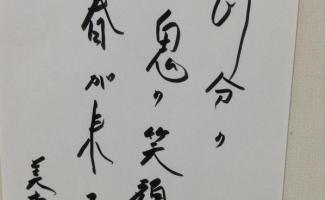 分の
鬼の笑顔
春が来
美